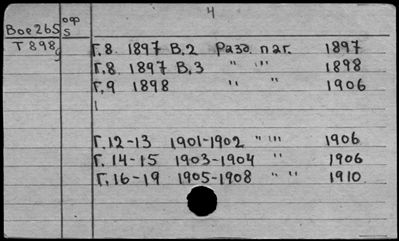 4
Вое265 оф
5
Т898
Г.8 1897 В.2 Разд. паг. 1897
Г.8 1897 В.3 " " 1898
Г.9 1898 " " 1906
Г.12-13 1901-1902 " " 1906
Г.14-15 1903-1904 " 1906
Г.16-19 1905-1908 " " 1910